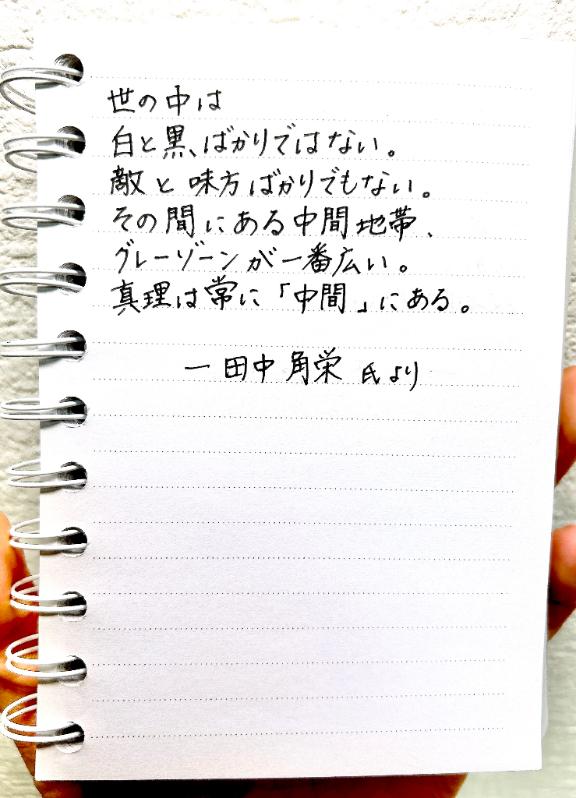 世の中は
白と黒、ばかりではない。
敵と味方ばかりでもない。
その間にある中間地帯、
グレーゾーンが一番広い。
真理は常に「中間」にある。
― 田中角栄 氏より